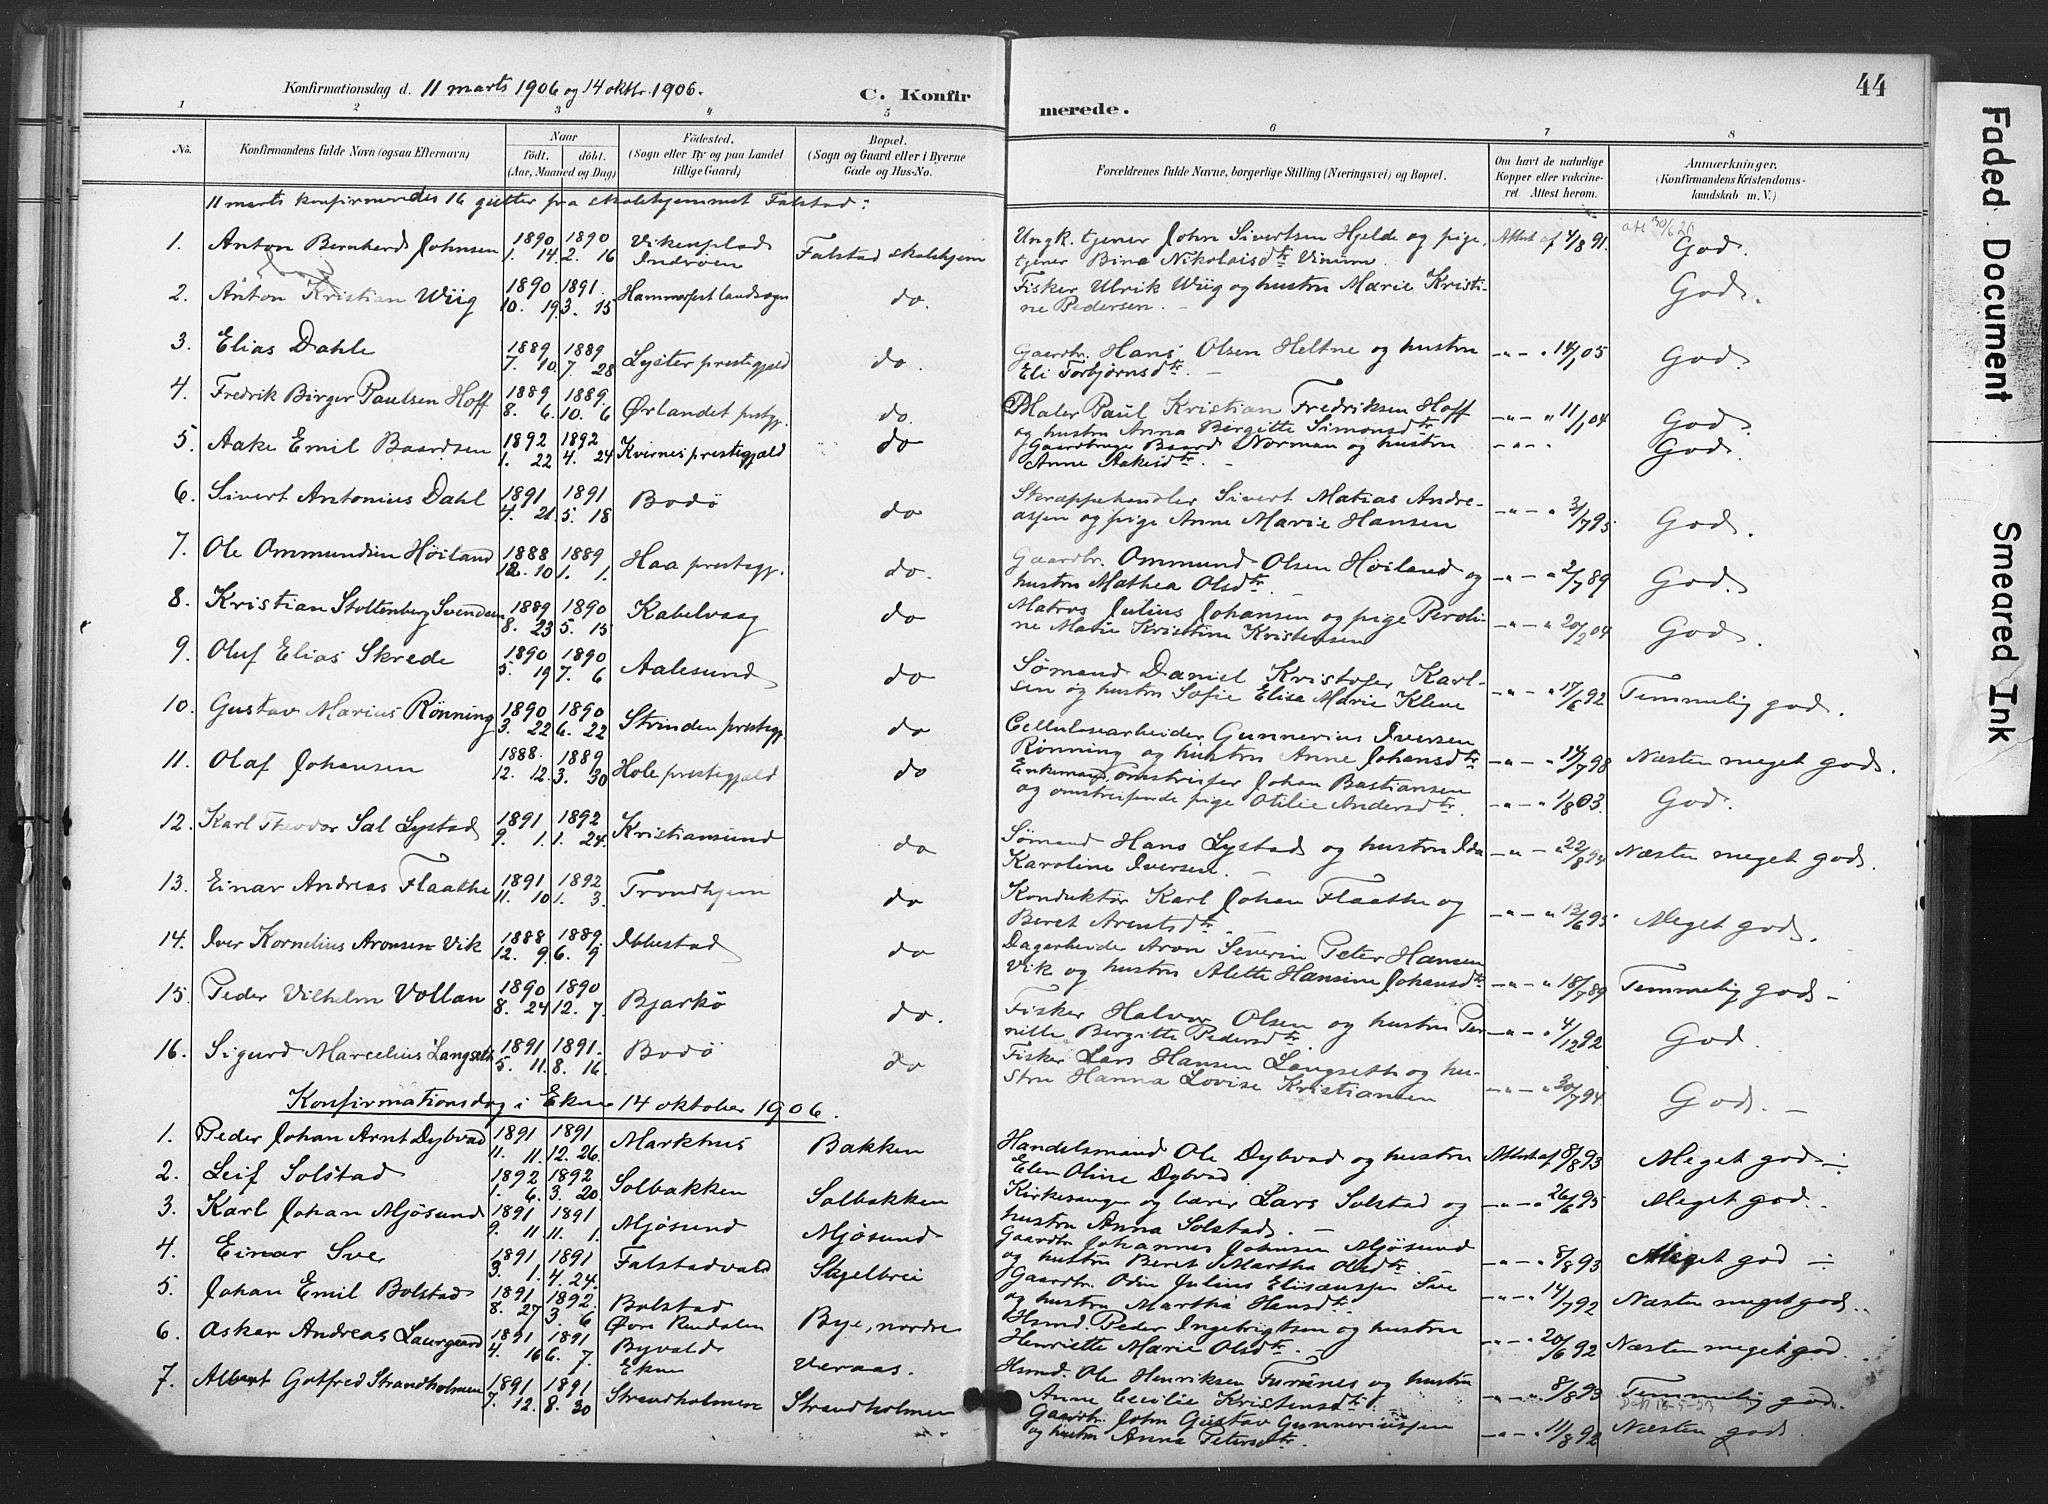 Konfirmationsdag d. 11 marts 1906 og 14 oktbr. 1906.
C. Konfirmerede.
44
1 2 3 4 5 6 7 8
No.
Konfirmandens fulde Navn (ogsaa Efternavn)
Naar
født. døbt.
(Aar, Maaned og Dag)
Fødested.
(Sogn eller By og paa Landet tillige Gaard)
Bopæl.
(Sogn og Gaard eller i Byerne Gade og Hus-No.
Forældrenes fulde Navne, borgerlige Stilling (Næringsvei) og Bopæl.
Om havt de naturlige Kopper eller vaccineret. Attest herom.
Anmærkninger.
(Konfirmandens Kristendomskundskab m. V.)
11 marts konfirmeredes 16 gutter fra skolehjemmet Falstad:
1. Anton Bernhard Johnsen 1890 1. 14. 1890 2. 16 Vikenplads Inderøen Falstad skolehjem Ungk. tjener John Sivertsen Hjelde og pige tjener Bina Nikolaisdtr Vinum. Attest af 4/8 91. God.
2. Anton Kristian Wiig 1890 10. 19. 1891. 3. 15 Hammerfest landsogn do. Fisker Ulrik Wiig og hustru Marie Kristine Pedersen. God.
3. Elias Dahle 1889 7. 10. 1889 7. 28 Lyster prestegjæld do. Gaardbr. Hans Olsen Heltne og hustru Eli Torbjørnsdtr. 05 God
4. Fredrik Birger Paulsen Hoff 1889 8. 6. 1889. 10. 6 Ørlandet prstgj. do. Maler Paul Kristian Fredriksen Hoff og hustru Anna Birgitte Simonsdtr 11/1 04 God.
5. Aake Emil Baardsen 1892 1. 22 1892 4. 24 Kvernes prestegjæld do Gaardbruger Baard Norman og hustru Anne Aakesdtr. God.
6. Sivert Antonius Dahl 1891 4. 21. 1891 5. 18 Bodø do Skræppehandler Sivert Matias Andreassen og pige Anne Marie Hansen 95 God.
7. Ole Ommundsen Høiland 1888 12. 10 1889 1. 1. Haa prestegj. do. Gaardbr. Ommund Olsen Høiland og hustru Mathea Olsdtr. 2/7 89 God.
8. Kristian Stoltenberg Svendsen 1889 8. 23 1890 5. 15 Kabelvaag do Matros Julius Johansen og pige Peroline Marie Kristine Kristensen 20/2 04 God.
9. Oluf Elias Skrede 1890 5. 19 1890 7. 6 Aalesund do Sømand Daniel Kristofer Karlsen og hustru Sofie Elisa Marie Kleve 17/6 92 Temmelig god.
10. Gustav Marius Rønning 1890 3. 22 1890 6. 22 Strinden prestegj. do Cellulosearbeider Gunnerius Iversen Rønning og hustru Anne Johansdtr 14/7 98 Næsten meget god.
11. Olaf Johansen 1888. 12. 12. 1889 3. 30 Hole prestegjæld do Enkemand, omstreifer Johan Bastiansen og omstreifende pige Otilie Andersdtr. 1/8 03. God.
12. Karl Theodor Sal Lystad 1891 9. 1. 1892 1. 24. Kristiansund do Sømand Hans Lystad og hustru Ida Karoline Iversen. 22/8 94 Næsten meget god.
13. Einar Andreas Flaathe 1891 11. 10 1892 1. 3. Trondhjem do Konduktør Karl Johan Flaathe og Beret Arentsdtr. 13/6 95 Meget god.
14. Iver Kornelius Aronsen Vik 1888 12. 9. 1889 6. 9 Ibbestad do Dagarbeider Aron Severin Peter Hansen Vik og hustru Alette Hansine Johansdtr 18/7 89 Temmelig god.
15. Peder Vilhelm Vollan 1890 8. 24 1890 12. 7. Bjarkø do. Fisker Halvor Olsen og hustru Pernille Bergitte Pedersdtr. 4/12 92 God.
16. Sigurd Marcelius Langseth 1891 5. 11. 1891. 8. 16. Bodø do Fisker Lars Hansen Langseth og hustru Hanna Lovise Kristiansen 30/7 94. God.
Konfirmationsdag i Ekne 14 oktober 1906.
1. Peder Johan Arnt Dybvad 1891 11. 11. 1891 12. 26. Markhus Bakken Handelsmand Ole Dybvad og hustru Elen Oline Dybvad Attest af 8/8 93 Meget god
2. Leif Solstad 1892 1. 6. 1892 3. 20 Solbakken Solbakken Kirkesanger og lærer Lars Solstad og hustru Anna Solstad. 26/6 95 Meget god.
3. Karl Johan Mjøsund 1891 9. 11. 1891 11. 1. Mjøsund Mjøsund Gaardbr. Johannes Johnsen Mjøsund og hustru Beret Martha Olsdtr. 8/8 93 Meget god
4. Einar Sve 1891 3. 1. 1891 4. 24. Falstadvald Skjelbrei Gaardbr. Odin Julius Eliseussen Sve og hustru Martha Hansdtr. 14/7 92 Næsten meget god.
5. Johan Emil Bolstad 1891 8. 27 1892. 3. 6 Bolstad Øvre Rendalen Bye, nordre Hsmd. Peder Ingebrigtsen og hustru Henriette Marie Olsdtr. 20/6 92 Næsten meget god.
6. Oskar Andreas Laurgaard 1891 4. 16 1891 6. 7. Byvald Ekne Veraas. Hsmd. Ole Henriksen Furunes og hustru Anne Cecilie Kristensdtr. 8/8 93 Temmelig god.
7. Albert Gotfred Strandholmen 1891 7. 12. 1891 8. 30 Strandholmen Strandholmen Gaardbr. John Gustav Gunneriussen og hustru Anna Petersdtr. 11/8 92 Næsten god.
Faded Document
Smeared Ink